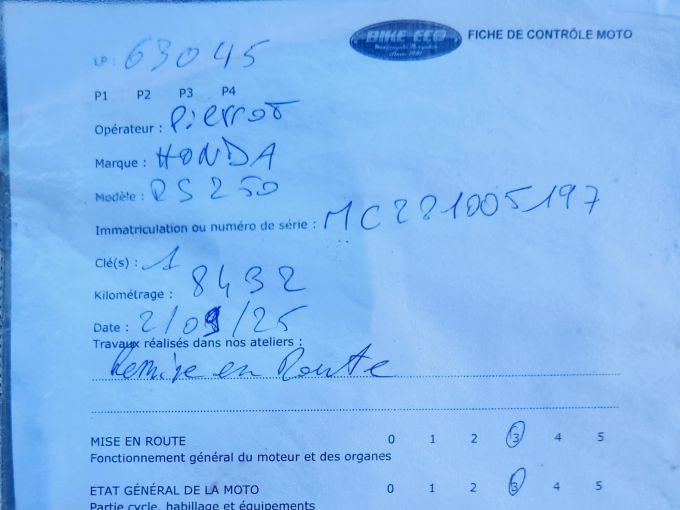 BIKE ECO
FICHE DE CONTRÔLE MOTO
LP : 63045
P1 P2 P3 P4
Opérateur : Pierrot
Marque : HONDA
Modèle : RS 250
Immatriculation ou numéro de série : MC221005197
Clé(s) : 1
Kilométrage : 8432
Date : 2/09/25
Travaux réalisés dans nos ateliers :
Remise en Route
MISE EN ROUTE 0 1 2 3 4 5
Fonctionnement général du moteur et des organes
ETAT GÉNÉRAL DE LA MOTO 0 1 2 3 4 5
Partie cycle, habillage et équipements